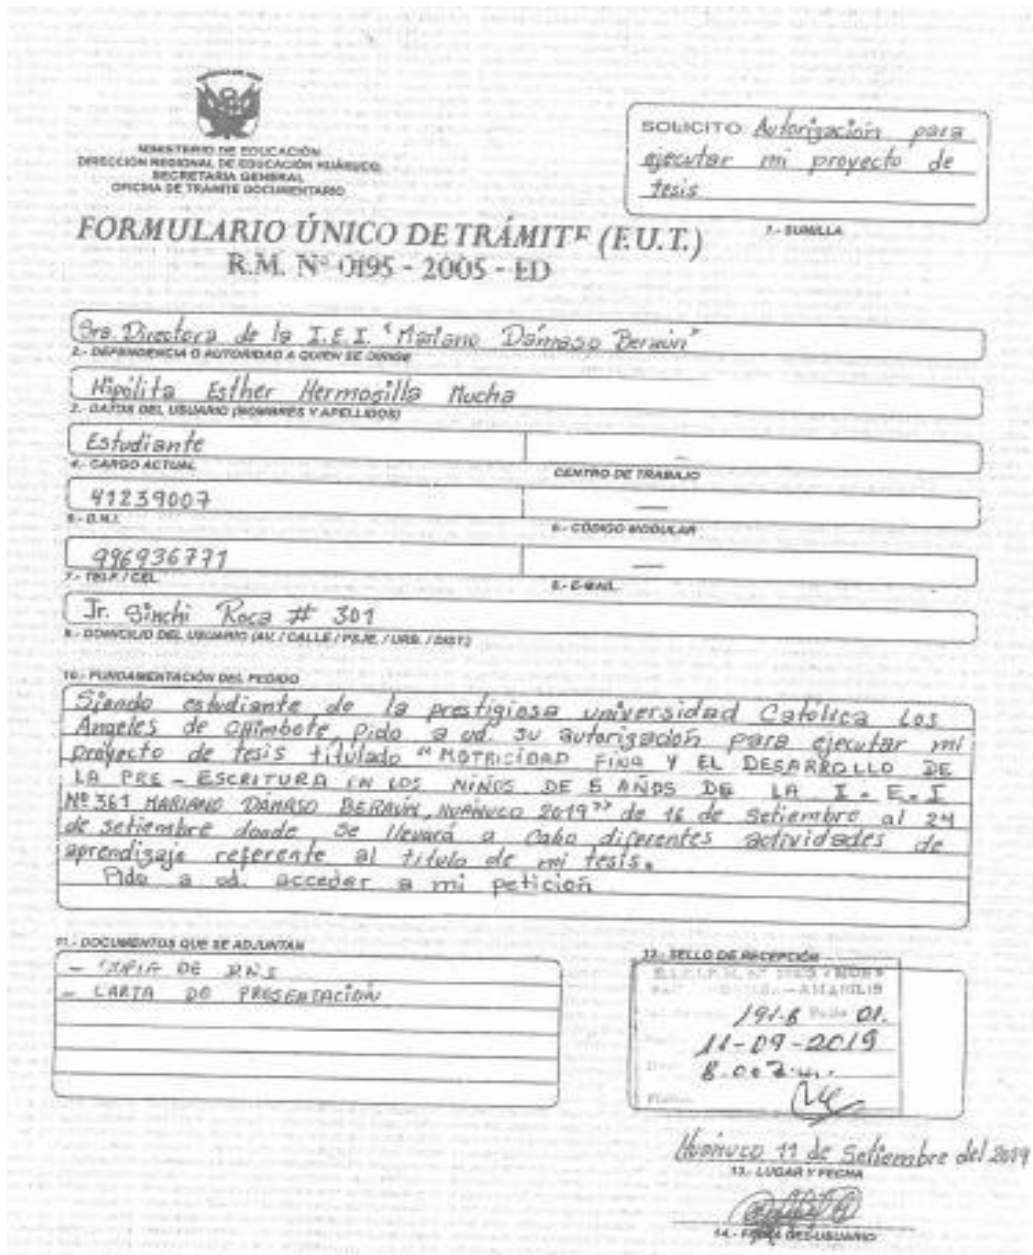 MINISTERIO DE EDUCACIÓN
DIRECCIÓN REGIONAL DE EDUCACIÓN HUÁNUCO
SECRETARIA GENERAL
OFICINA DE TRAMITE DOCUMENTARIO
SOLICITO: Autorización para
ejecutar mi proyecto de
tesis
1.- SUMILLA
FORMULARIO ÚNICO DE TRÁMITE (F.U.T.)
R.M. Nº 0195 - 2005 - ED
Sra. Directora de la I.E.I. "Mariano Dámaso Beraún"
2.- DEPENDENCIA O AUTORIDAD A QUIEN SE DIRIGE
Hipólita Esther Hermosilla Mucha
3.- DATOS DEL USUARIO (NOMBRES Y APELLIDOS)
Estudiante —
4.- CARGO ACTUAL CENTRO DE TRABAJO
41239007 —
5.- D.N.I. 6.- CÓDIGO MODULAR
996936771 —
7.- TELF. / CEL. 8.- E-MAIL.
Jr. Sinchi Roca # 301
9.- DOMICILIO DEL USUARIO (AV. / CALLE / PSJE. / URB. / DIST.)
10.- FUNDAMENTACIÓN DEL PEDIDO
Siendo estudiante de la prestigiosa universidad Católica Los
Angeles de Chimbote, Pido a ud. su autorización para ejecutar mi
proyecto de tesis titulado "MOTRICIDAD FINA Y EL DESARROLLO DE
LA PRE-ESCRITURA EN LOS NIÑOS DE 5 AÑOS DE LA I.E.I
Nº 361 MARIANO DÁMASO BERAÚN, HUÁNUCO 2019" de 16 de Setiembre al 24
de setiembre donde se llevará a cabo diferentes actividades de
aprendizaje referente al titulo de mi tesis.
Pido a ud. acceder a mi petición
11.- DOCUMENTOS QUE SE ADJUNTAN
- COPIA DE DNI
- CARTA DE PRESENTACIÓN
12.- SELLO DE RECEPCIÓN
AMARILIS
191-B Folio 01.
11-09-2019
Huánuco 11 de Setiembre del 2019
13.- LUGAR Y FECHA
14.- FIRMA DEL USUARIO